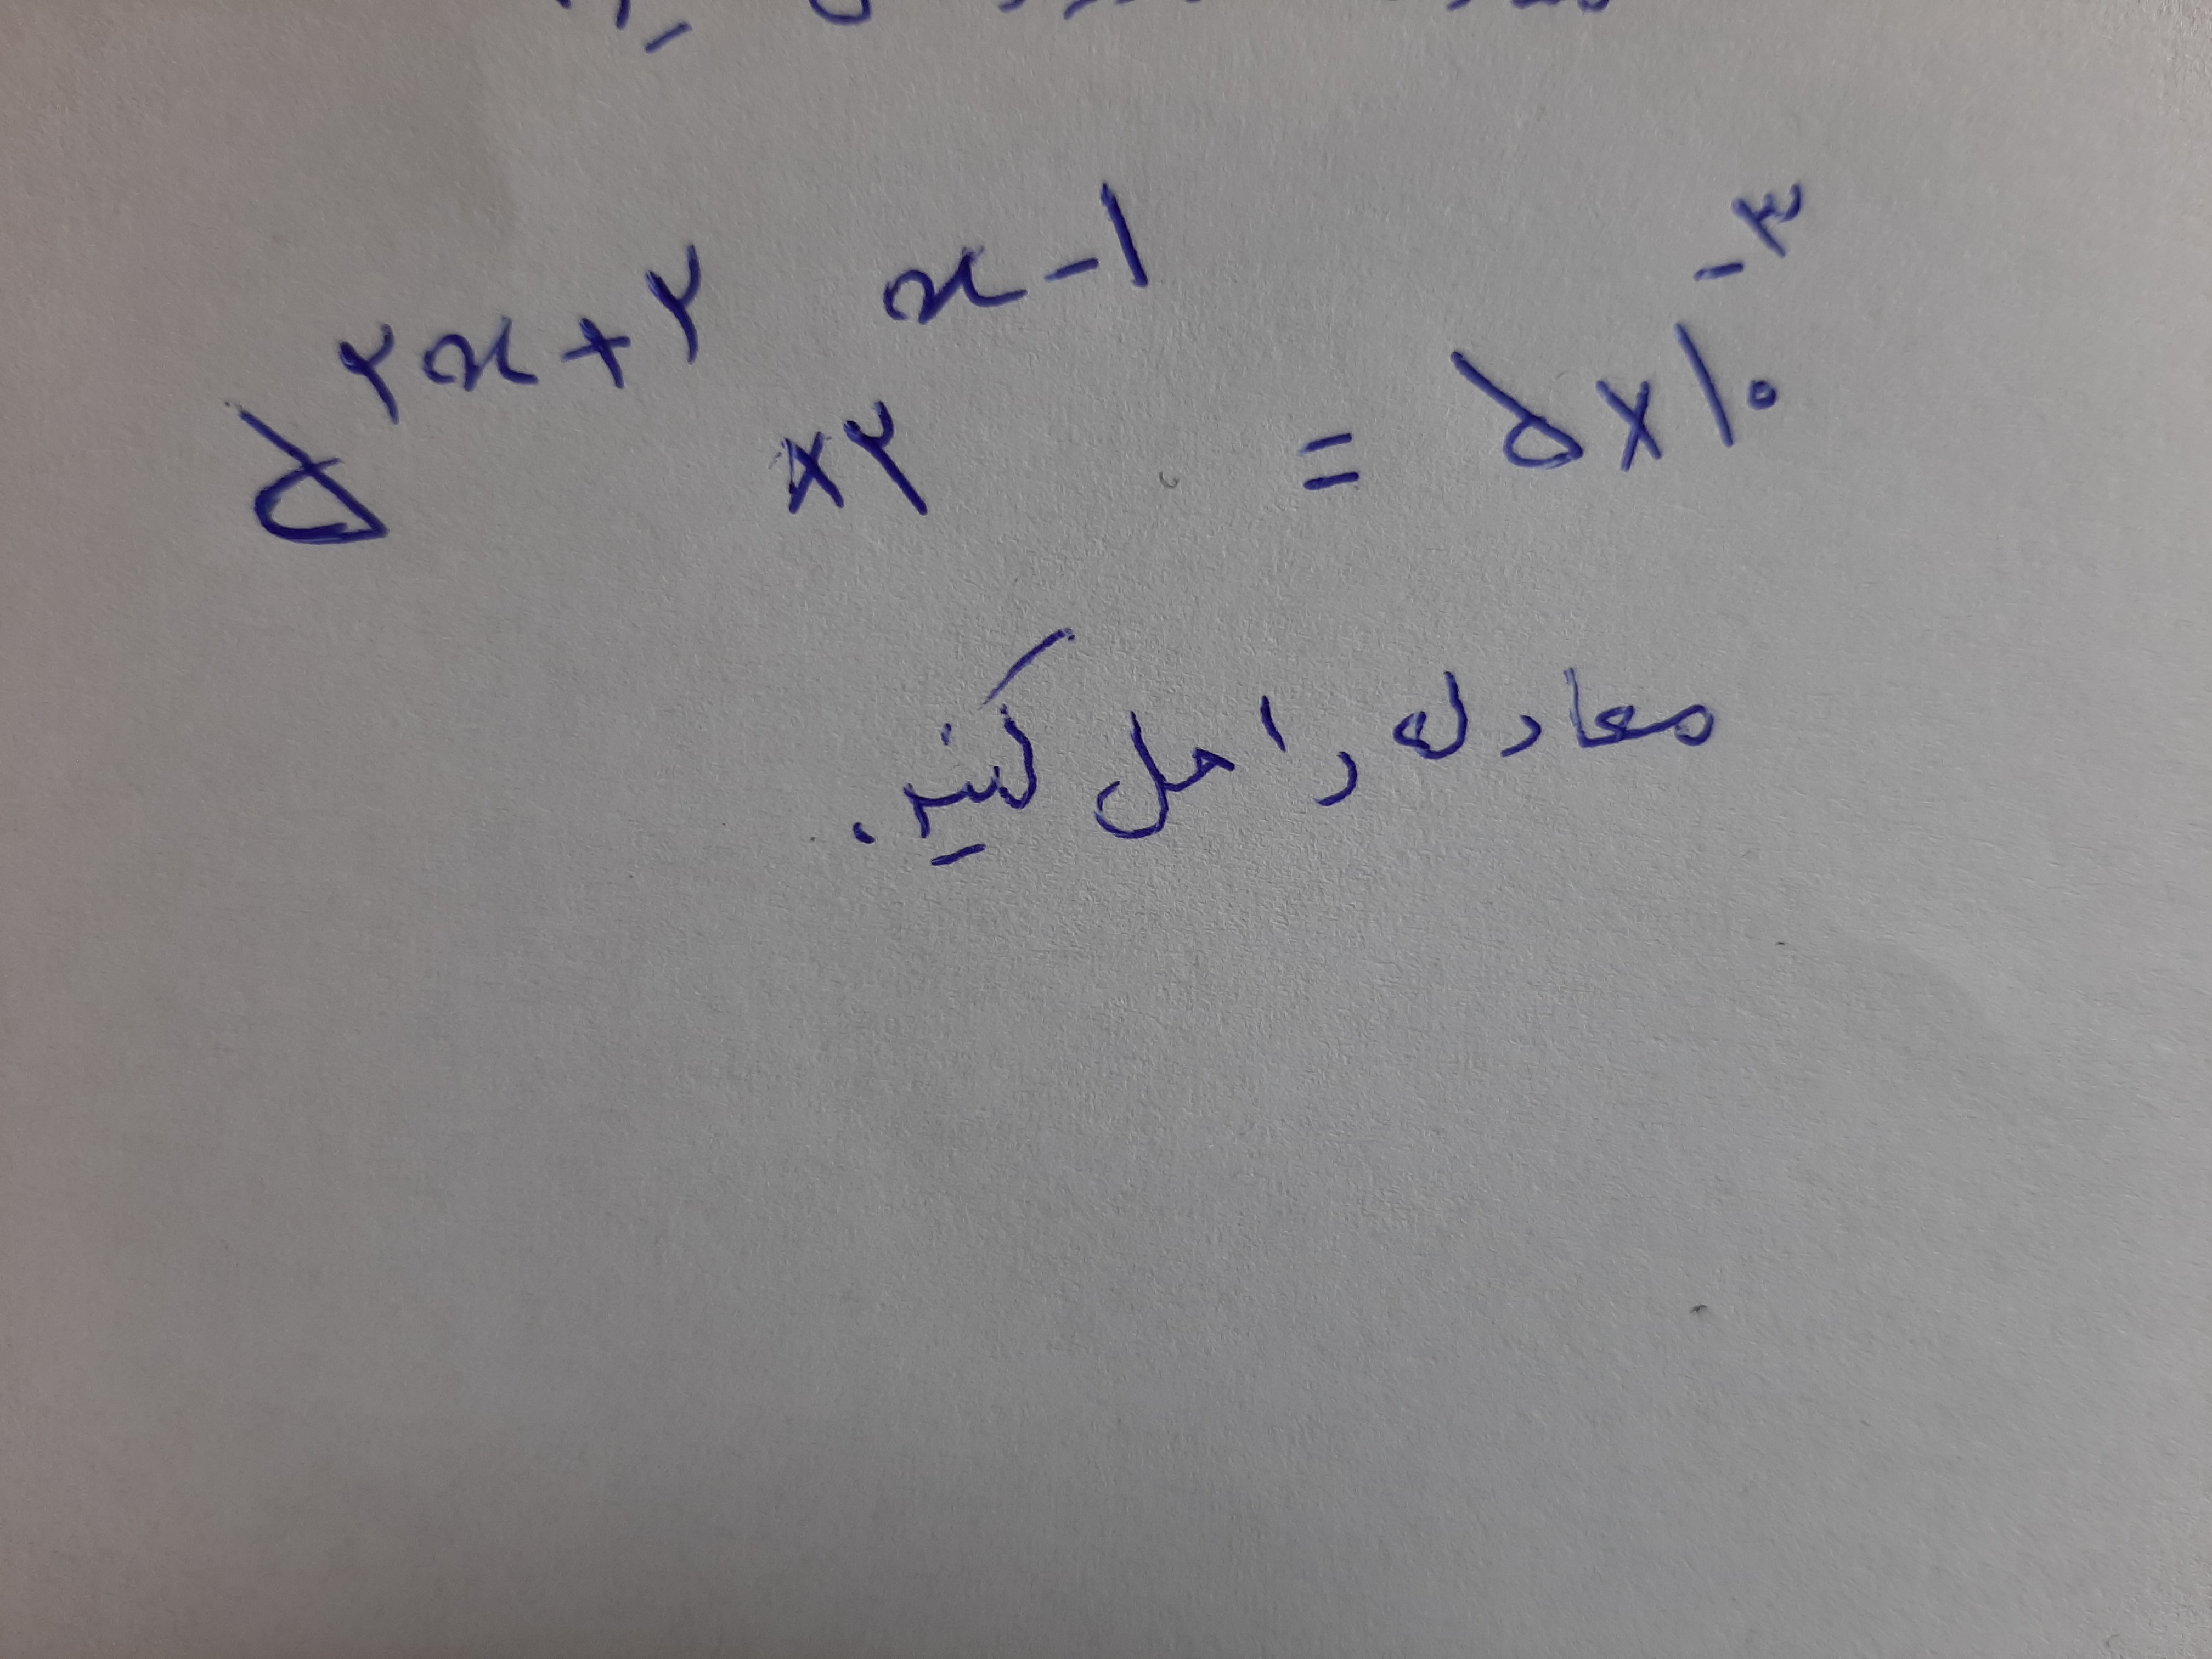 ۵^{۲x+۲} ×۲^{x-۱} = ۵×۱۰^{-۳}
معادله را حل کنید.